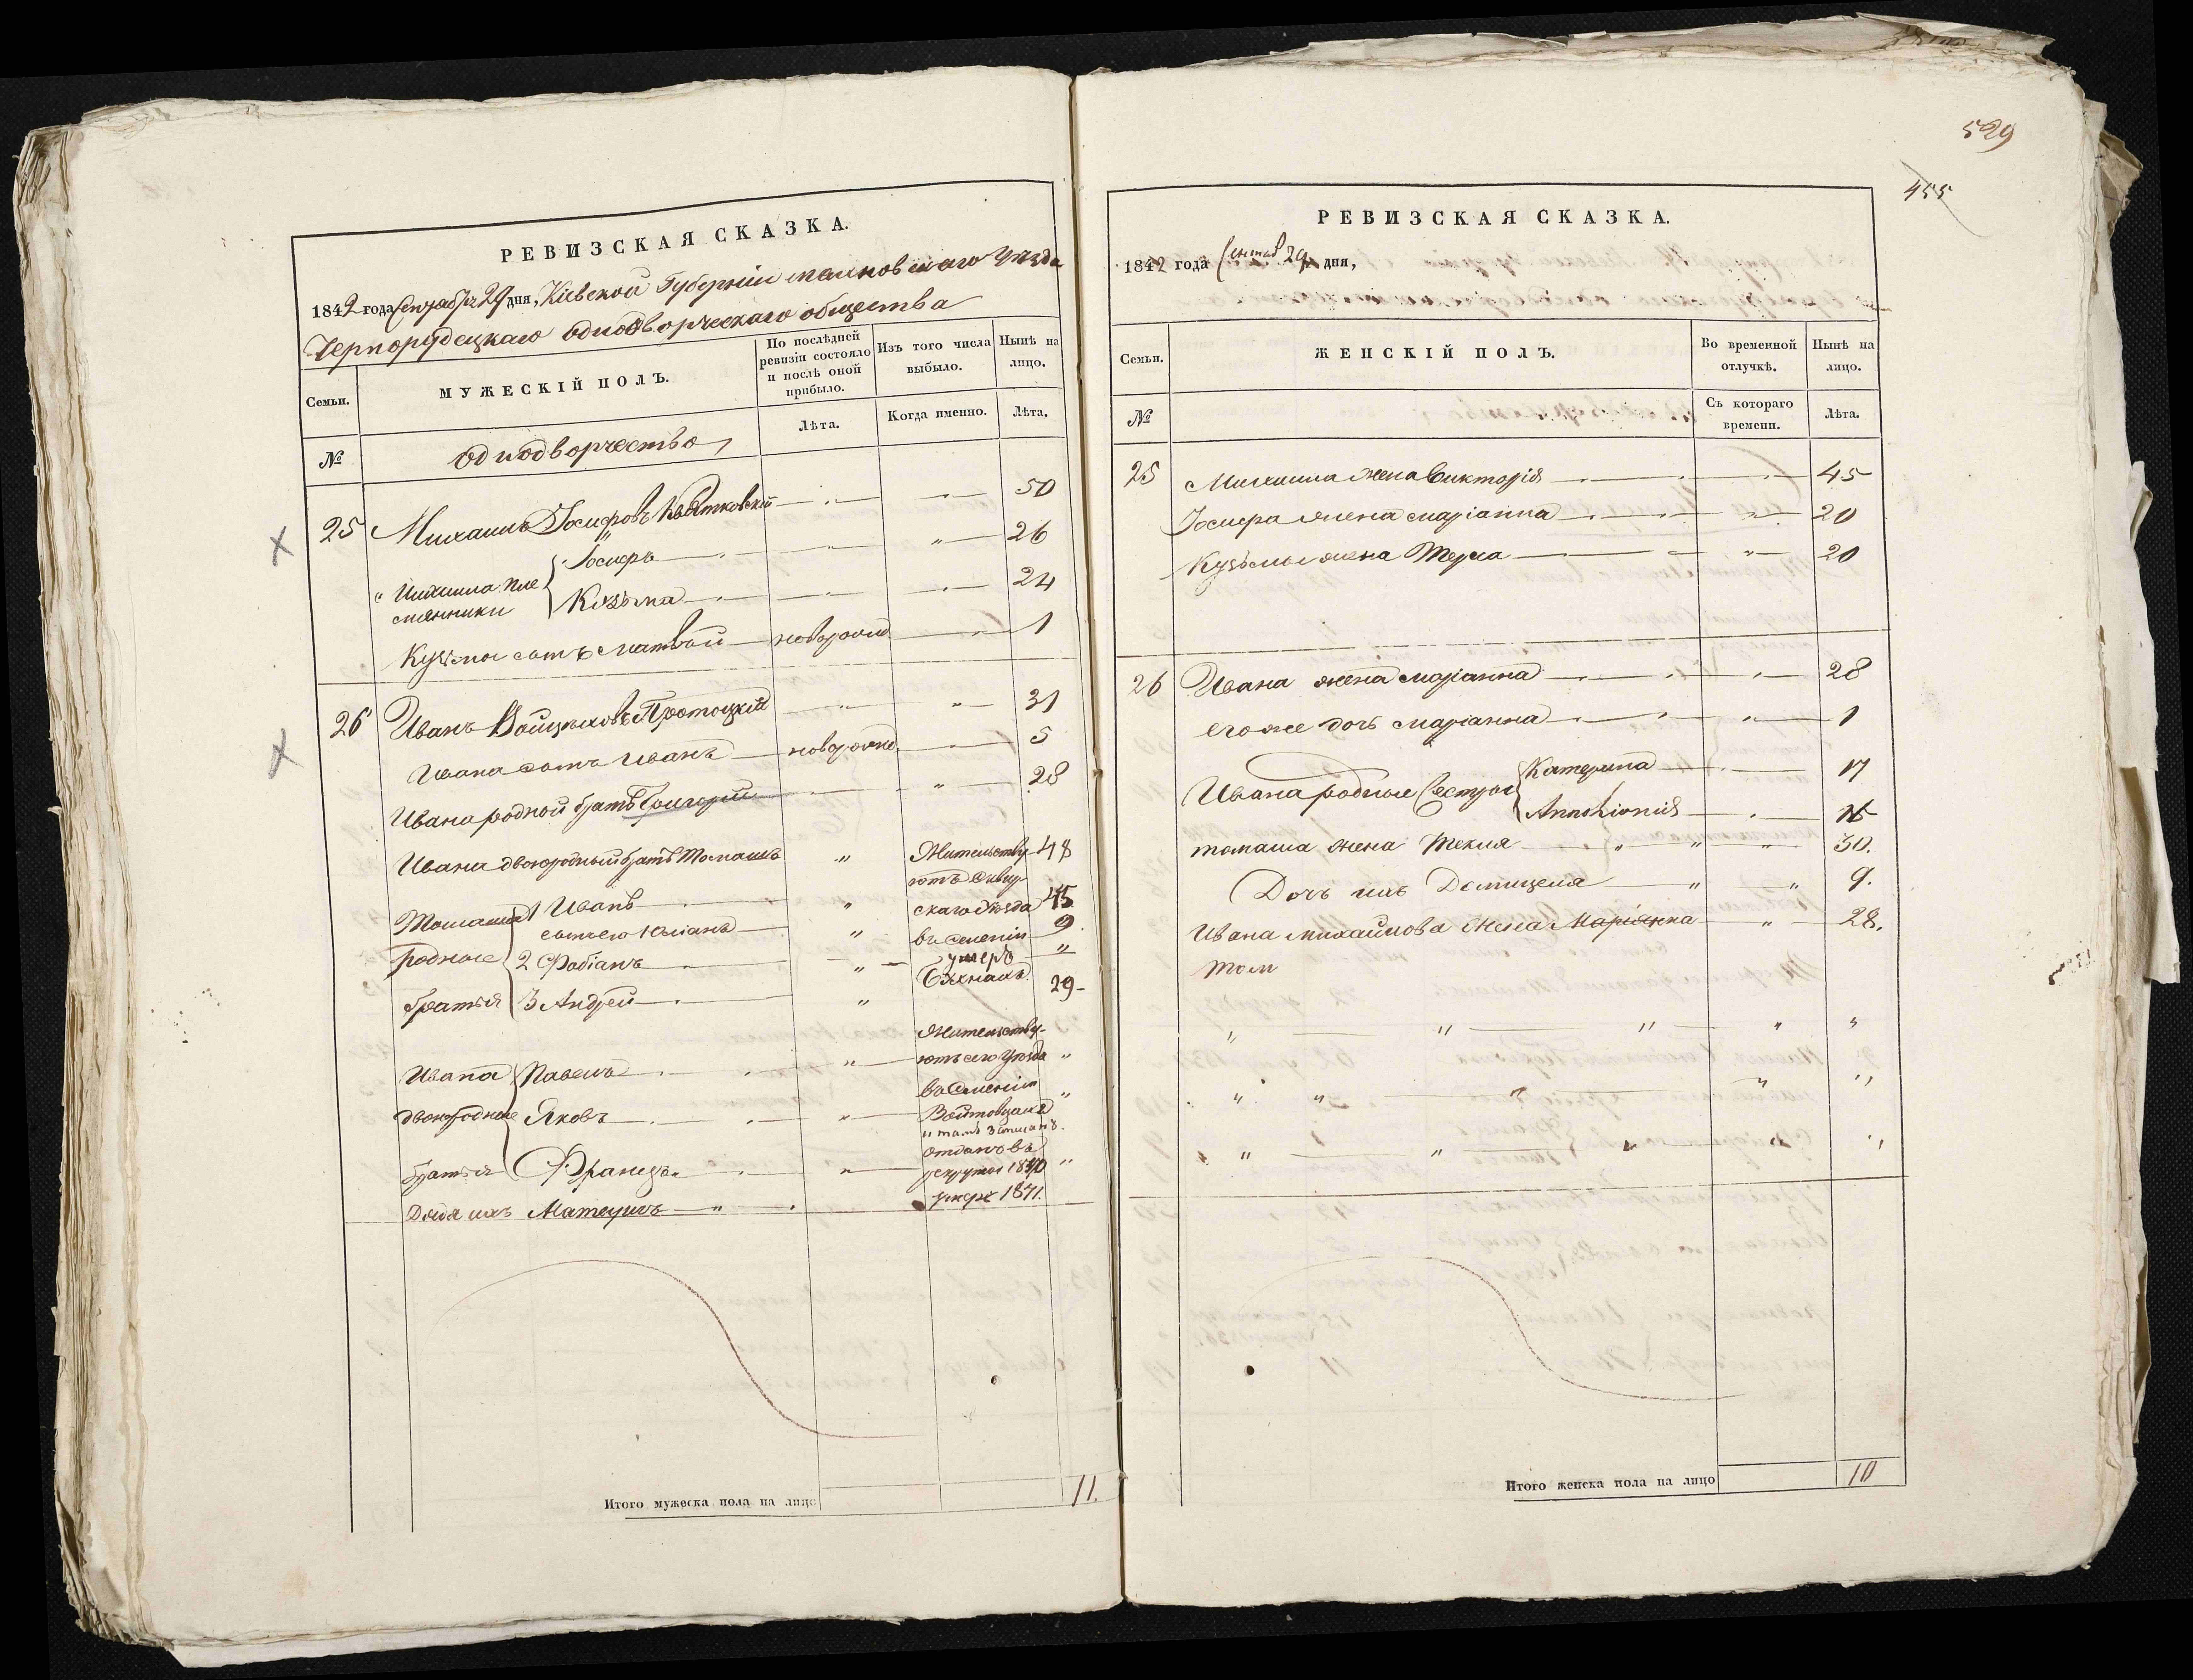 РЕВИЗСКАЯ СКАЗКА.
1842 года Сентября 29 дня, Кіевской Губерніи махновскаго Уѣзда
Чернорудецкаго однодворческаго общества
Семьи.
МУЖЕСКІЙ ПОЛЪ.
По послѣдней ревизіи состояло и послѣ оной прибыло.
Изъ того числа выбыло.
Нынѣ на лицо.
№
однодворчество
Лѣта.
Когда именно.
Лѣта.
25 Михаилъ Іосифовъ Квятковскій 50
Михаила пле Іосифъ 26
мянники Козьма 24
Кузьмы сынъ матвѣй новорожд 1
26 Иванъ Войцѣховъ Протоцкій 31
Ивана сынъ Иванъ новорожд 5
Ивана родной братъ Григорій 28
Ивана двоюродный братъ Томашъ " Жительству 48
ютъ Сквир
Томаша 1 Иванъ " скаго Уѣзда 45
сынъ его Юліанъ " въ селеніи 9
родные 2 Фабіанъ " умеръ "
братья 3 Андрей " 29
Жительству-
ютъ сего Уѣзда "
Ивана Павелъ "
въ Селеніи
двоюродные Яковъ " "
и тамъ записанъ.
отданъ въ
братья Францъ " рекруты 1840 "
Дядя ихъ Матеушъ " умеръ 1841.
Итого мужеска пола на лицо 11.
529
455
РЕВИЗСКАЯ СКАЗКА.
1842 года Сентяб 29 дня,
Семьи.
ЖЕНСКІЙ ПОЛЪ.
Во временной отлучкѣ.
Нынѣ на лицо.
№
Съ котораго времени.
Лѣта.
25 Михаила жена Викторія 45
Іосифа жена маріанна " 20
Кузьмы жена Текла " 20
26 Ивана жена маріанна 28
его же дочь маріанна " 1
Ивана родные Сестры Катерина 17
15
томаша жена Текля " " " 30.
Дочь ихъ Домицеля " " 9.
Ивана михайлова жена Маріянна " 28.
Том
" " " " "
" " " " "
" " " " "
Итого женска пола на лицо 10